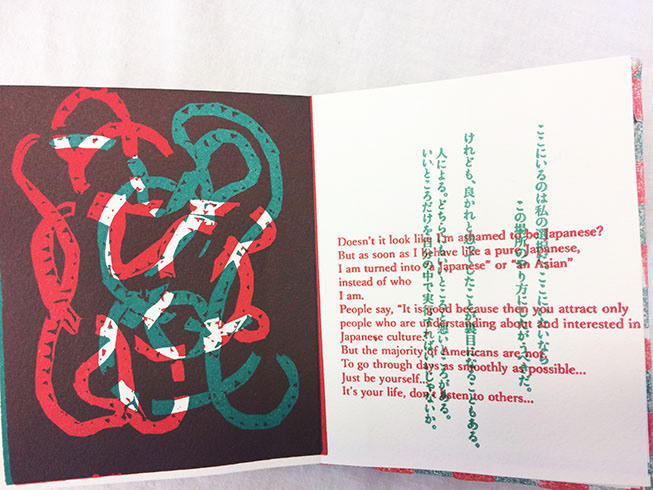 Doesn't it look like I'm ashamed to be Japanese?
But as soon as I behave like a pure Japanese,
I am turned into "a Japanese" or "an Asian"
instead of who
I am.
People say, "It is good because then you attract only
people who are understanding about and interested in
Japanese culture."
But the majority of Americans are not.
To go through days as smoothly as possible...
Just be yourself...
It's your life, don't listen to others...
ここにいるのは私の選択だ。ここにいたいなら、
この場所のやり方にしたがうべきだ。
けれども、良かれと思ってしたことが裏目にでることもある。
人による。どちらにもいいところと悪いところがある。
いいところだけを自分の中で いいじゃないか。